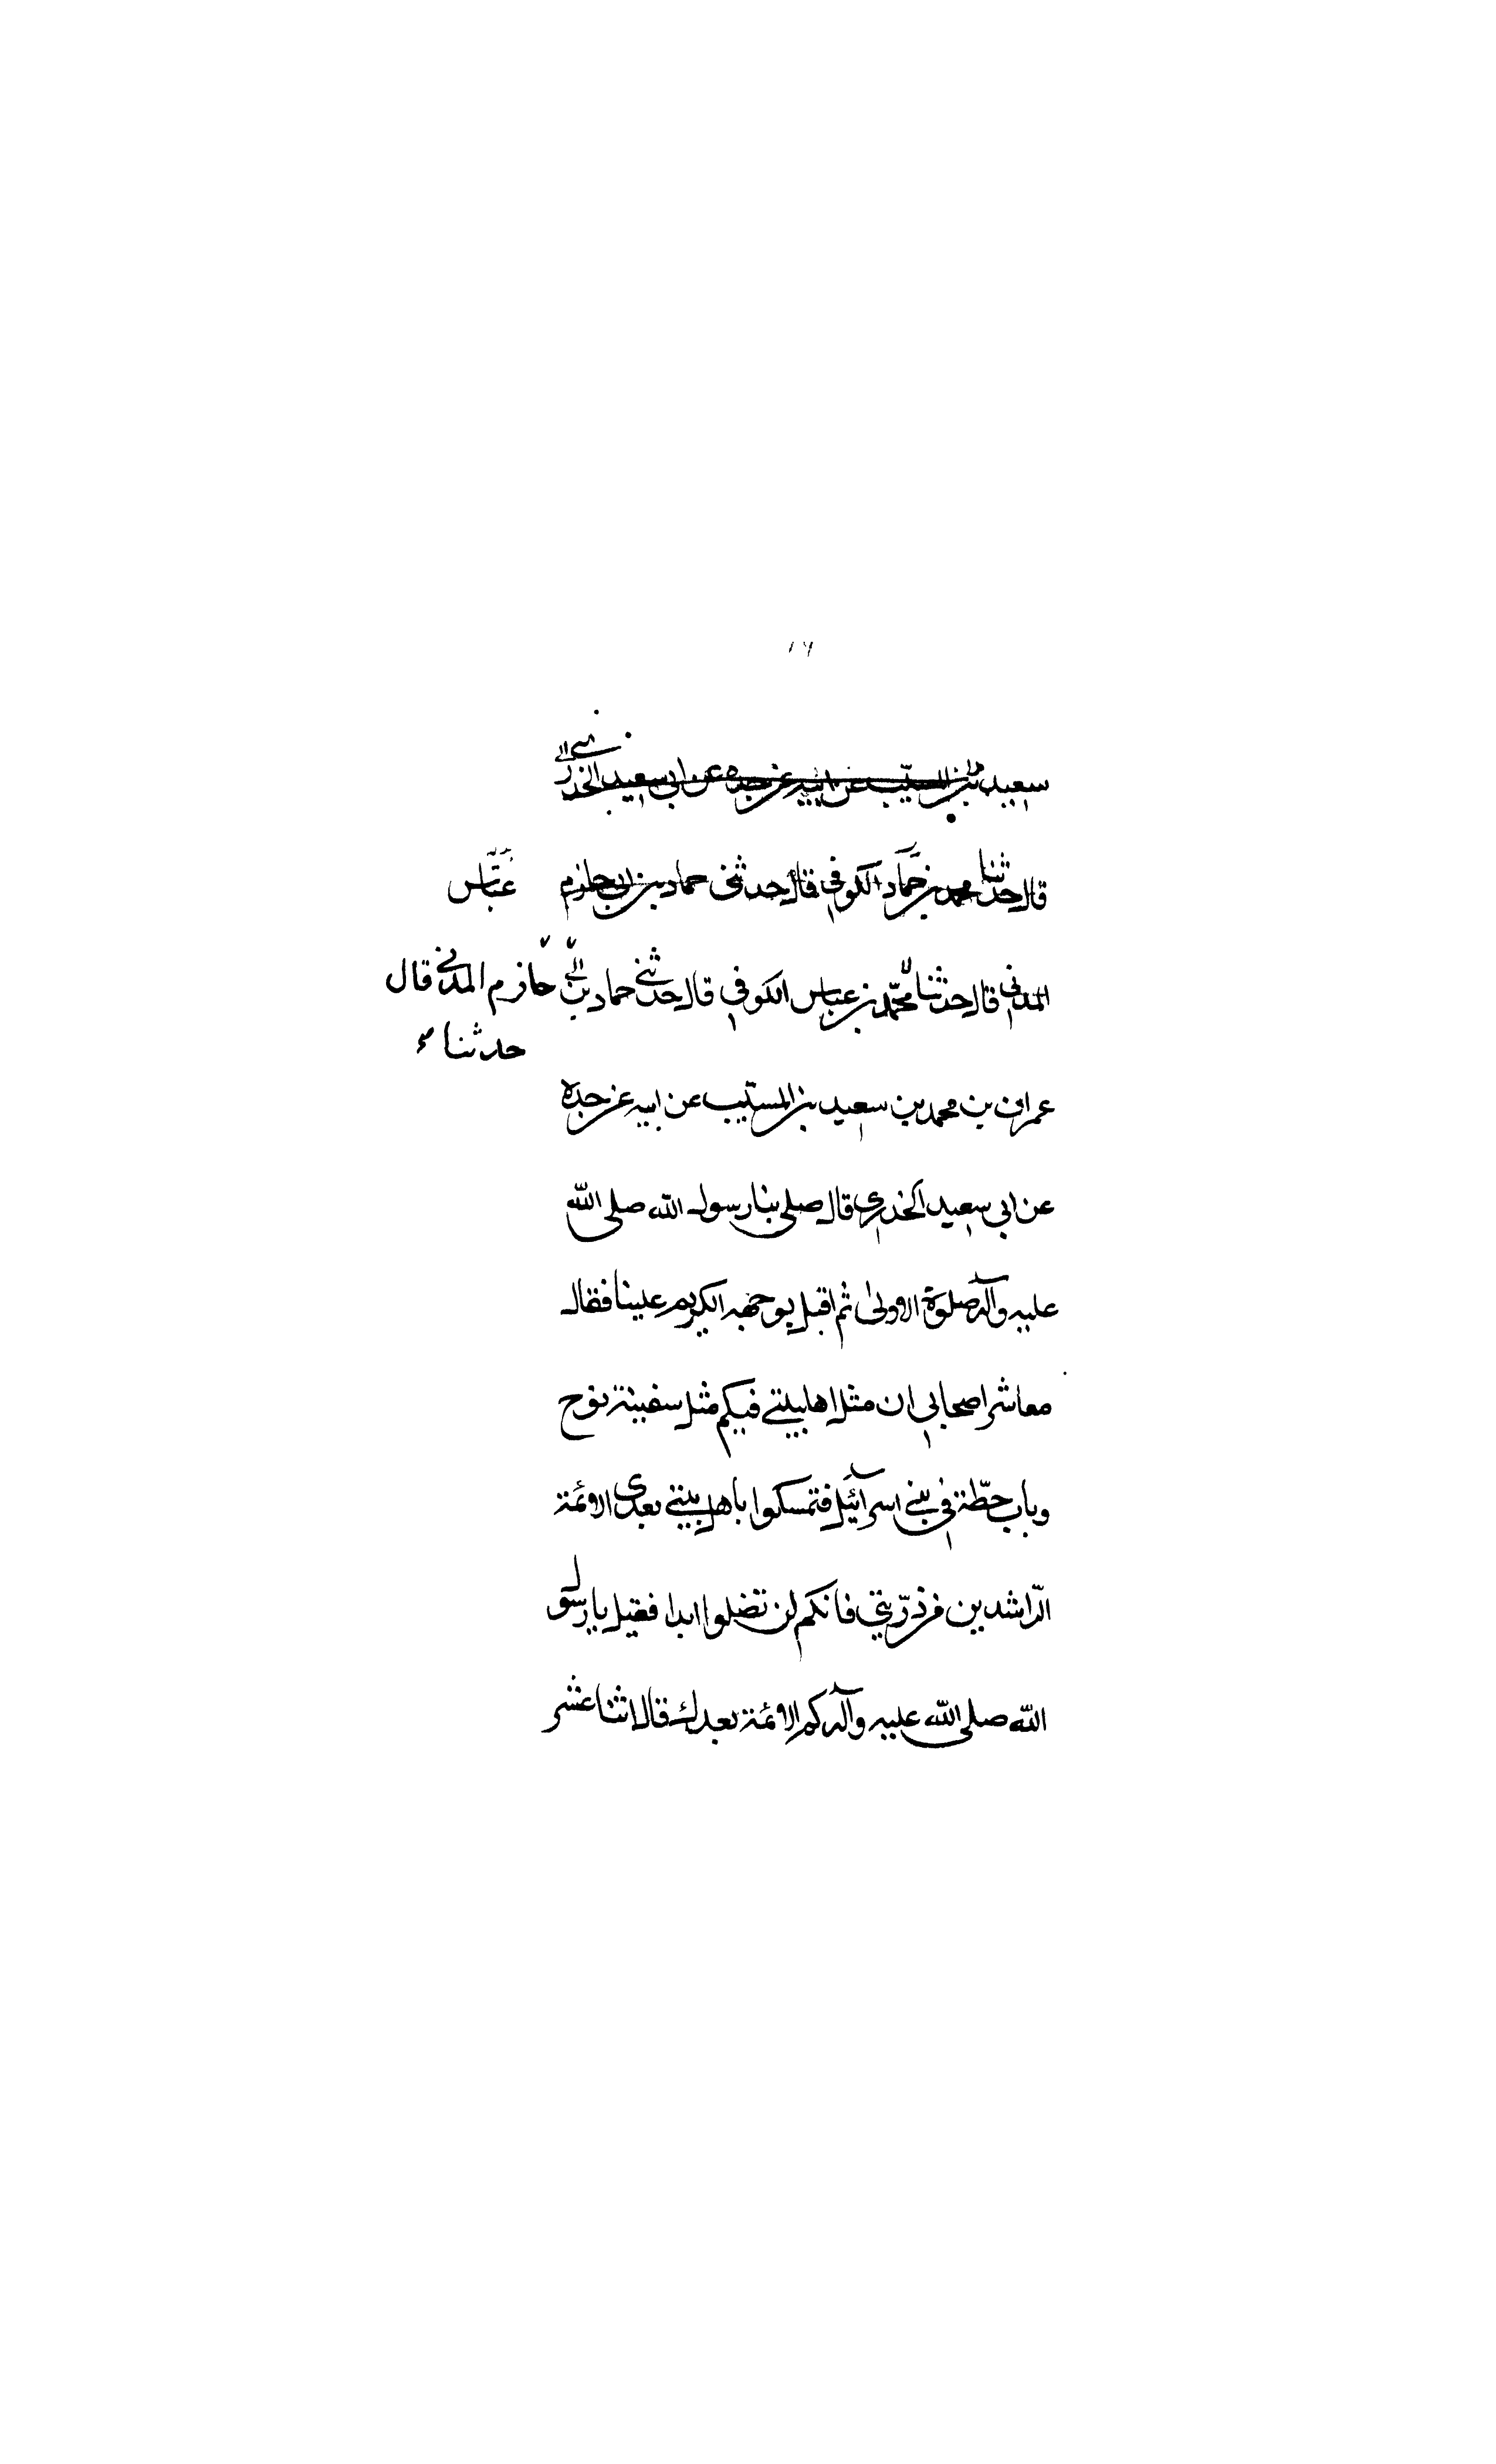 سعيد بن المسيّب عن ابيه عن جده عن ابي سعيد الخدري
قال حدثنا محمد بن حمّاد الكوفي قال حدثنى حماد بن ابي حازم عبّاس
المدني قال حدثنا محمّد بن عباس الكوفي قال حدثني حماد بن ابي حازم المدني قال
حدثنا
عمران بن محمد بن سعيد بن المسيّب عن ابيه عن جده
عن ابي سعيد الخدري قال صلى بنا رسول الله صلى الله
عليه وآله صلوة الاولىٰ ثم اقبل بوجهه الكريم علينا فقال
معاشر اصحابي ان مثل اهل بيتي فيكم مثل سفينة نوح
وباب حطّة في بني اسرآئيل فتمسكوا باهل بيتي بعدى الائمة
الرّاشدين من ذرّيتي فانكم لن تضلوا ابدا فقيل يا رسول
الله صلى الله عليه وآله كم الائمة بعدك قال اثنا عشر